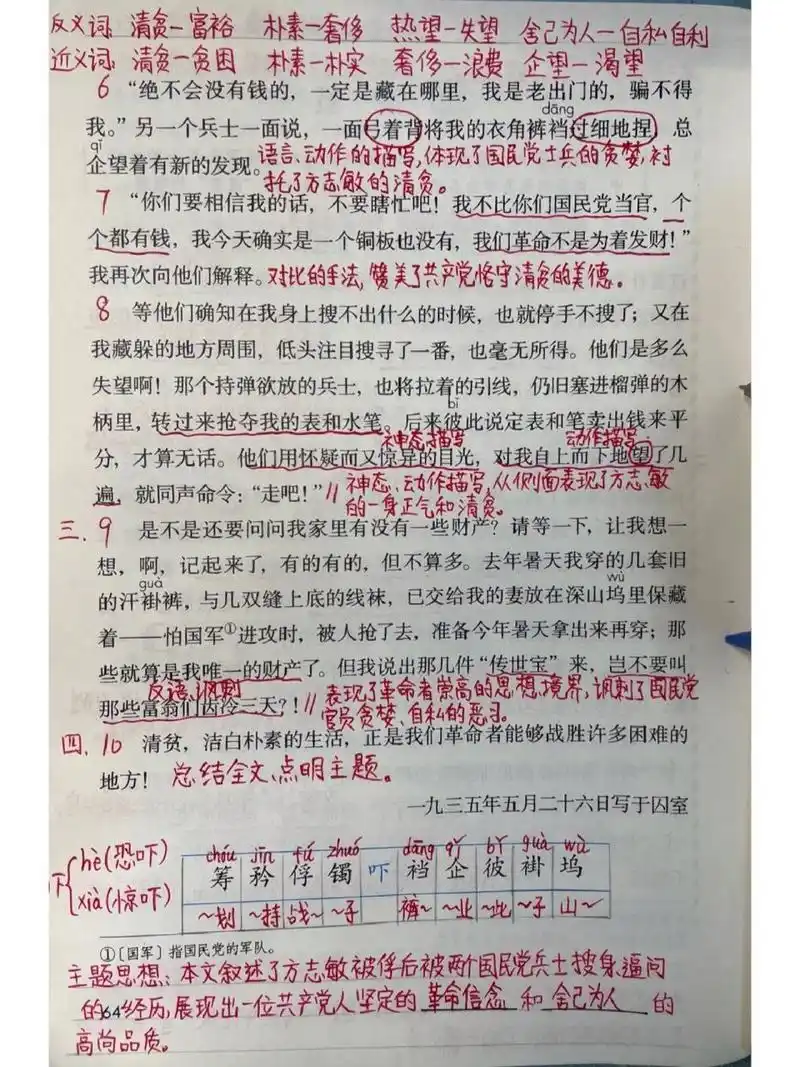 反义词: 清贫—富裕 朴素—奢侈 热望—失望 舍己为人—自私自利
近义词: 清贫—贫困 朴素—朴实 奢侈—浪费 企望—渴望
6 “绝不会没有钱的，一定是藏在哪里，我是老出门的，骗不得
dāng
我。”另一个兵士一面说，一面弓着背将我的衣角裤裆过细地捏，总
qǐ
企望着有新的发现。语言、动作的描写，体现了国民党士兵的贪婪，衬
托了方志敏的清贫。
7 “你们要相信我的话，不要瞎忙吧！我不比你们国民党当官，个
个都有钱，我今天确实是一个铜板也没有，我们革命不是为着发财！”
我再次向他们解释。对比的手法，赞美了共产党恪守清贫的美德。
8 等他们确知在我身上搜不出什么的时候，也就停手不搜了；又在
我藏躲的地方周围，低头注目搜寻了一番，也毫无所得。他们是多么
失望啊！那个持弹欲放的兵士，也将拉着的引线，仍旧塞进榴弹的木
bǐ
柄里，转过来抢夺我的表和水笔。后来彼此说定表和笔卖出钱来平
神态描写 动作描写
分，才算无话。他们用怀疑而又惊异的目光，对我自上而下地望了几
遍，就同声命令：“走吧！”// 神态、动作描写，从侧面表现了方志敏
的一身正气和清贫。
三. 9 是不是还要问问我家里有没有一些财产？请等一下，让我想一
想，啊，记起来了，有的有的，但不算多。去年暑天我穿的几套旧
guà wù
的汗褂裤，与几双缝上底的线袜，已交给我的妻放在深山坞里保藏
着——怕国军①进攻时，被人抢了去，准备今年暑天拿出来再穿；那
些就算是我唯一的财产了。但我说出那几件“传世宝”来，岂不要叫
反语、讽刺
那些富翁们齿冷三天？！// 表现了革命者崇高的思想境界，讽刺了国民党
官员贪婪、自私的恶习。
四. 10 清贫，洁白朴素的生活，正是我们革命者能够战胜许多困难的
地方！ 总结全文、点明主题。
一九三五年五月二十六日写于囚室
hè(恐吓) chóu jīn fú zhuó dāng qǐ bǐ guà wù
吓 筹 矜 俘 镯 吓 裆 企 彼 褂 坞
xià(惊吓) ～划 ～持 战～ ～子 裤～ ～业 ～此 ～子 山～
①〔国军〕指国民党的军队。
主题思想: 本文叙述了方志敏被俘后被两个国民党兵士搜身、逼问
的64经历，展现出一位共产党人坚定的 革命信念 和 舍己为人 的
高尚品质。